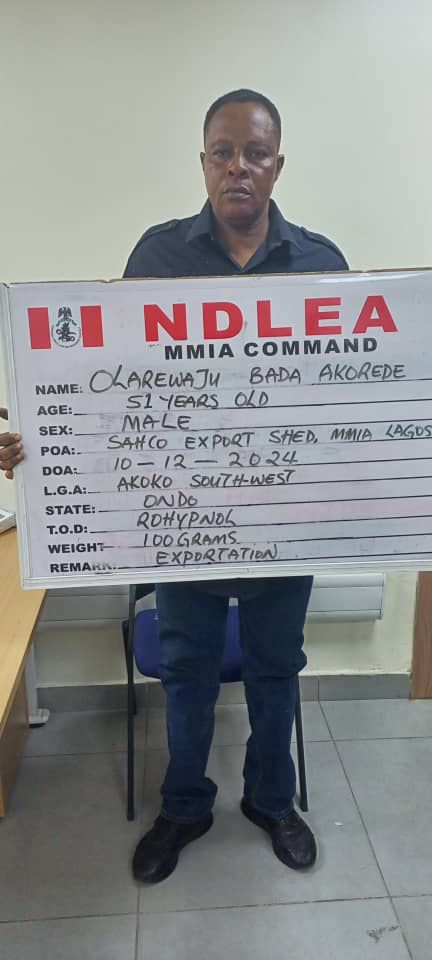 NDLEA
MMIA COMMAND
NAME: OLAREWAJU BADA AKOREDE
AGE: 51 YEARS OLD
SEX: MALE
POA: SAHCO EXPORT SHED, MMIA LAGOS
DOA: 10-12-2024
L.G.A: AKOKO SOUTH-WEST
STATE: ONDO
T.O.D: ROHYPNOL
WEIGHT 100GRAMS
REMARK: EXPORTATION